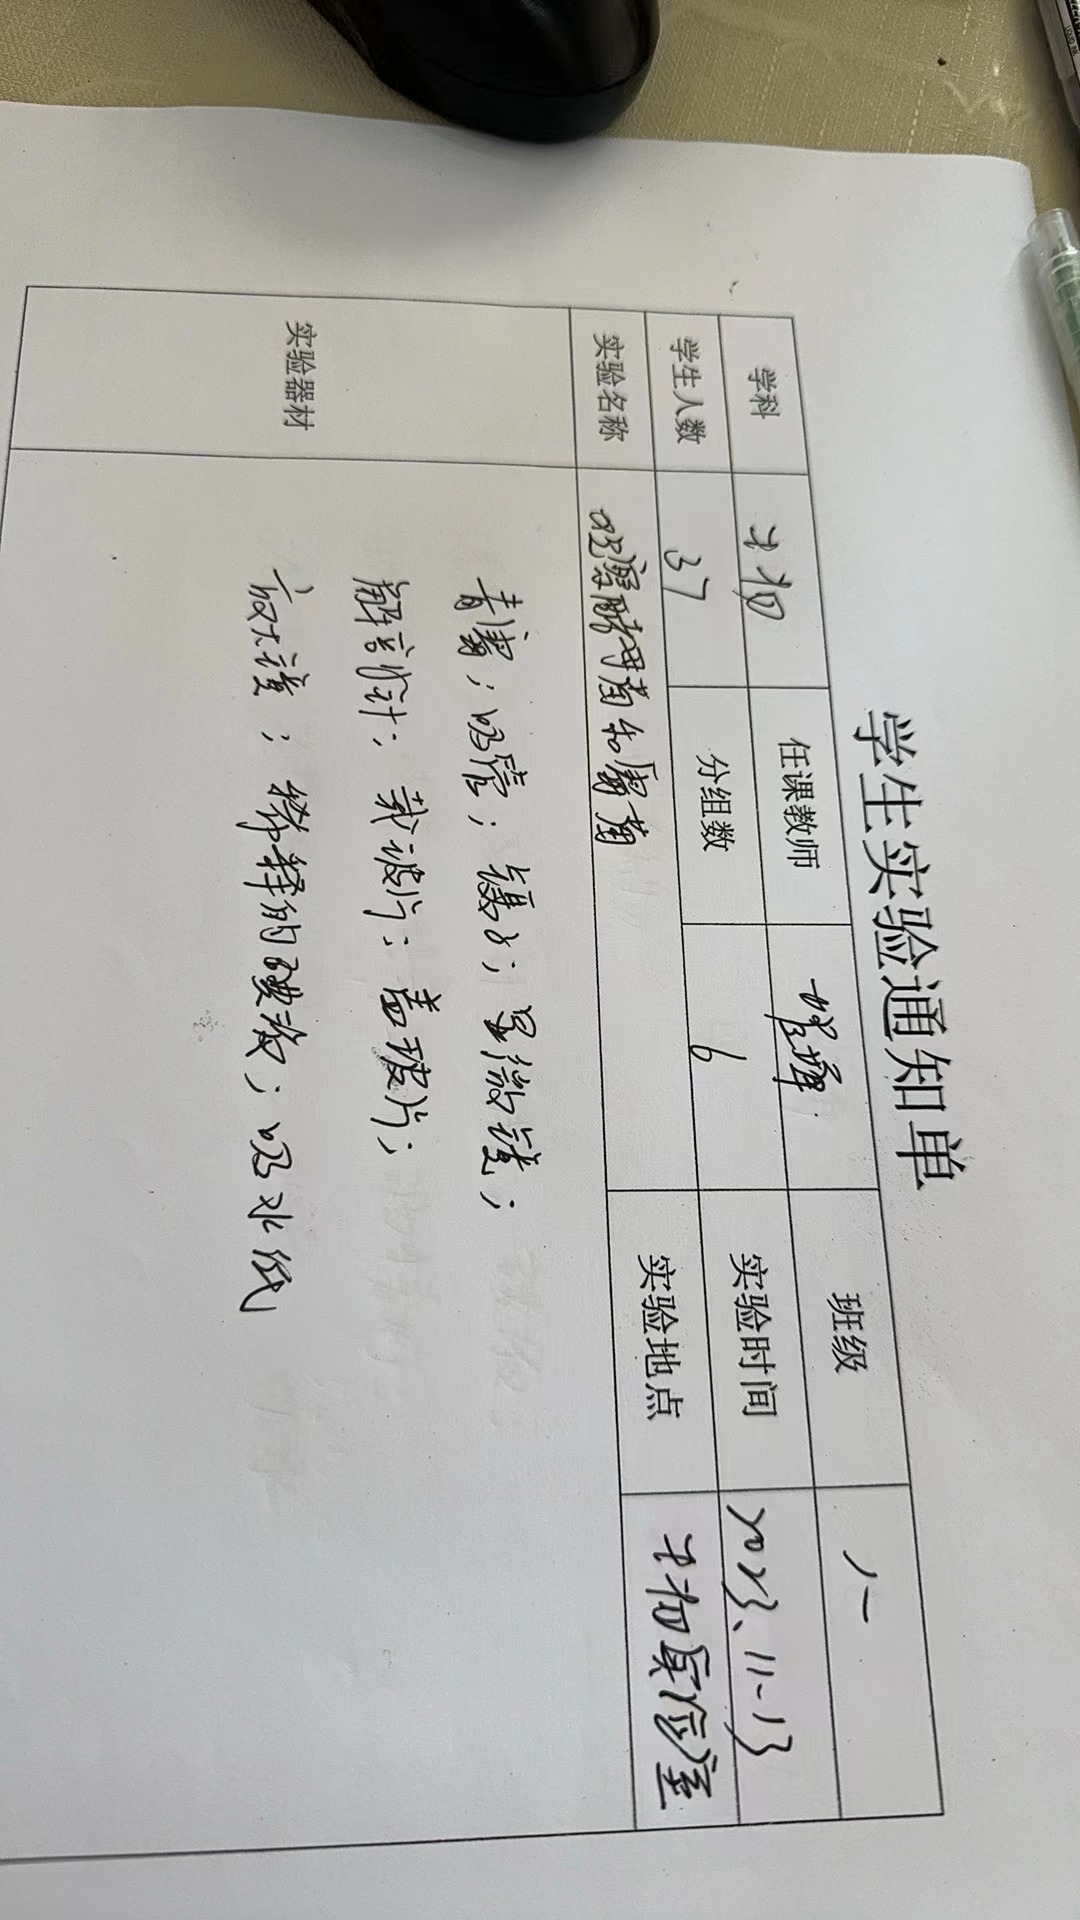 学生实验通知单
学科 生物 任课教师 班级 八一
学生人数 37 分组数 6 实验时间 2023、11-13
实验名称 观察酵母菌和霉菌 实验地点 生物实验室
实验器材
青霉；吸管；镊子；显微镜；
解剖针；载玻片；盖玻片；
放大镜；稀释的碘液；吸水纸